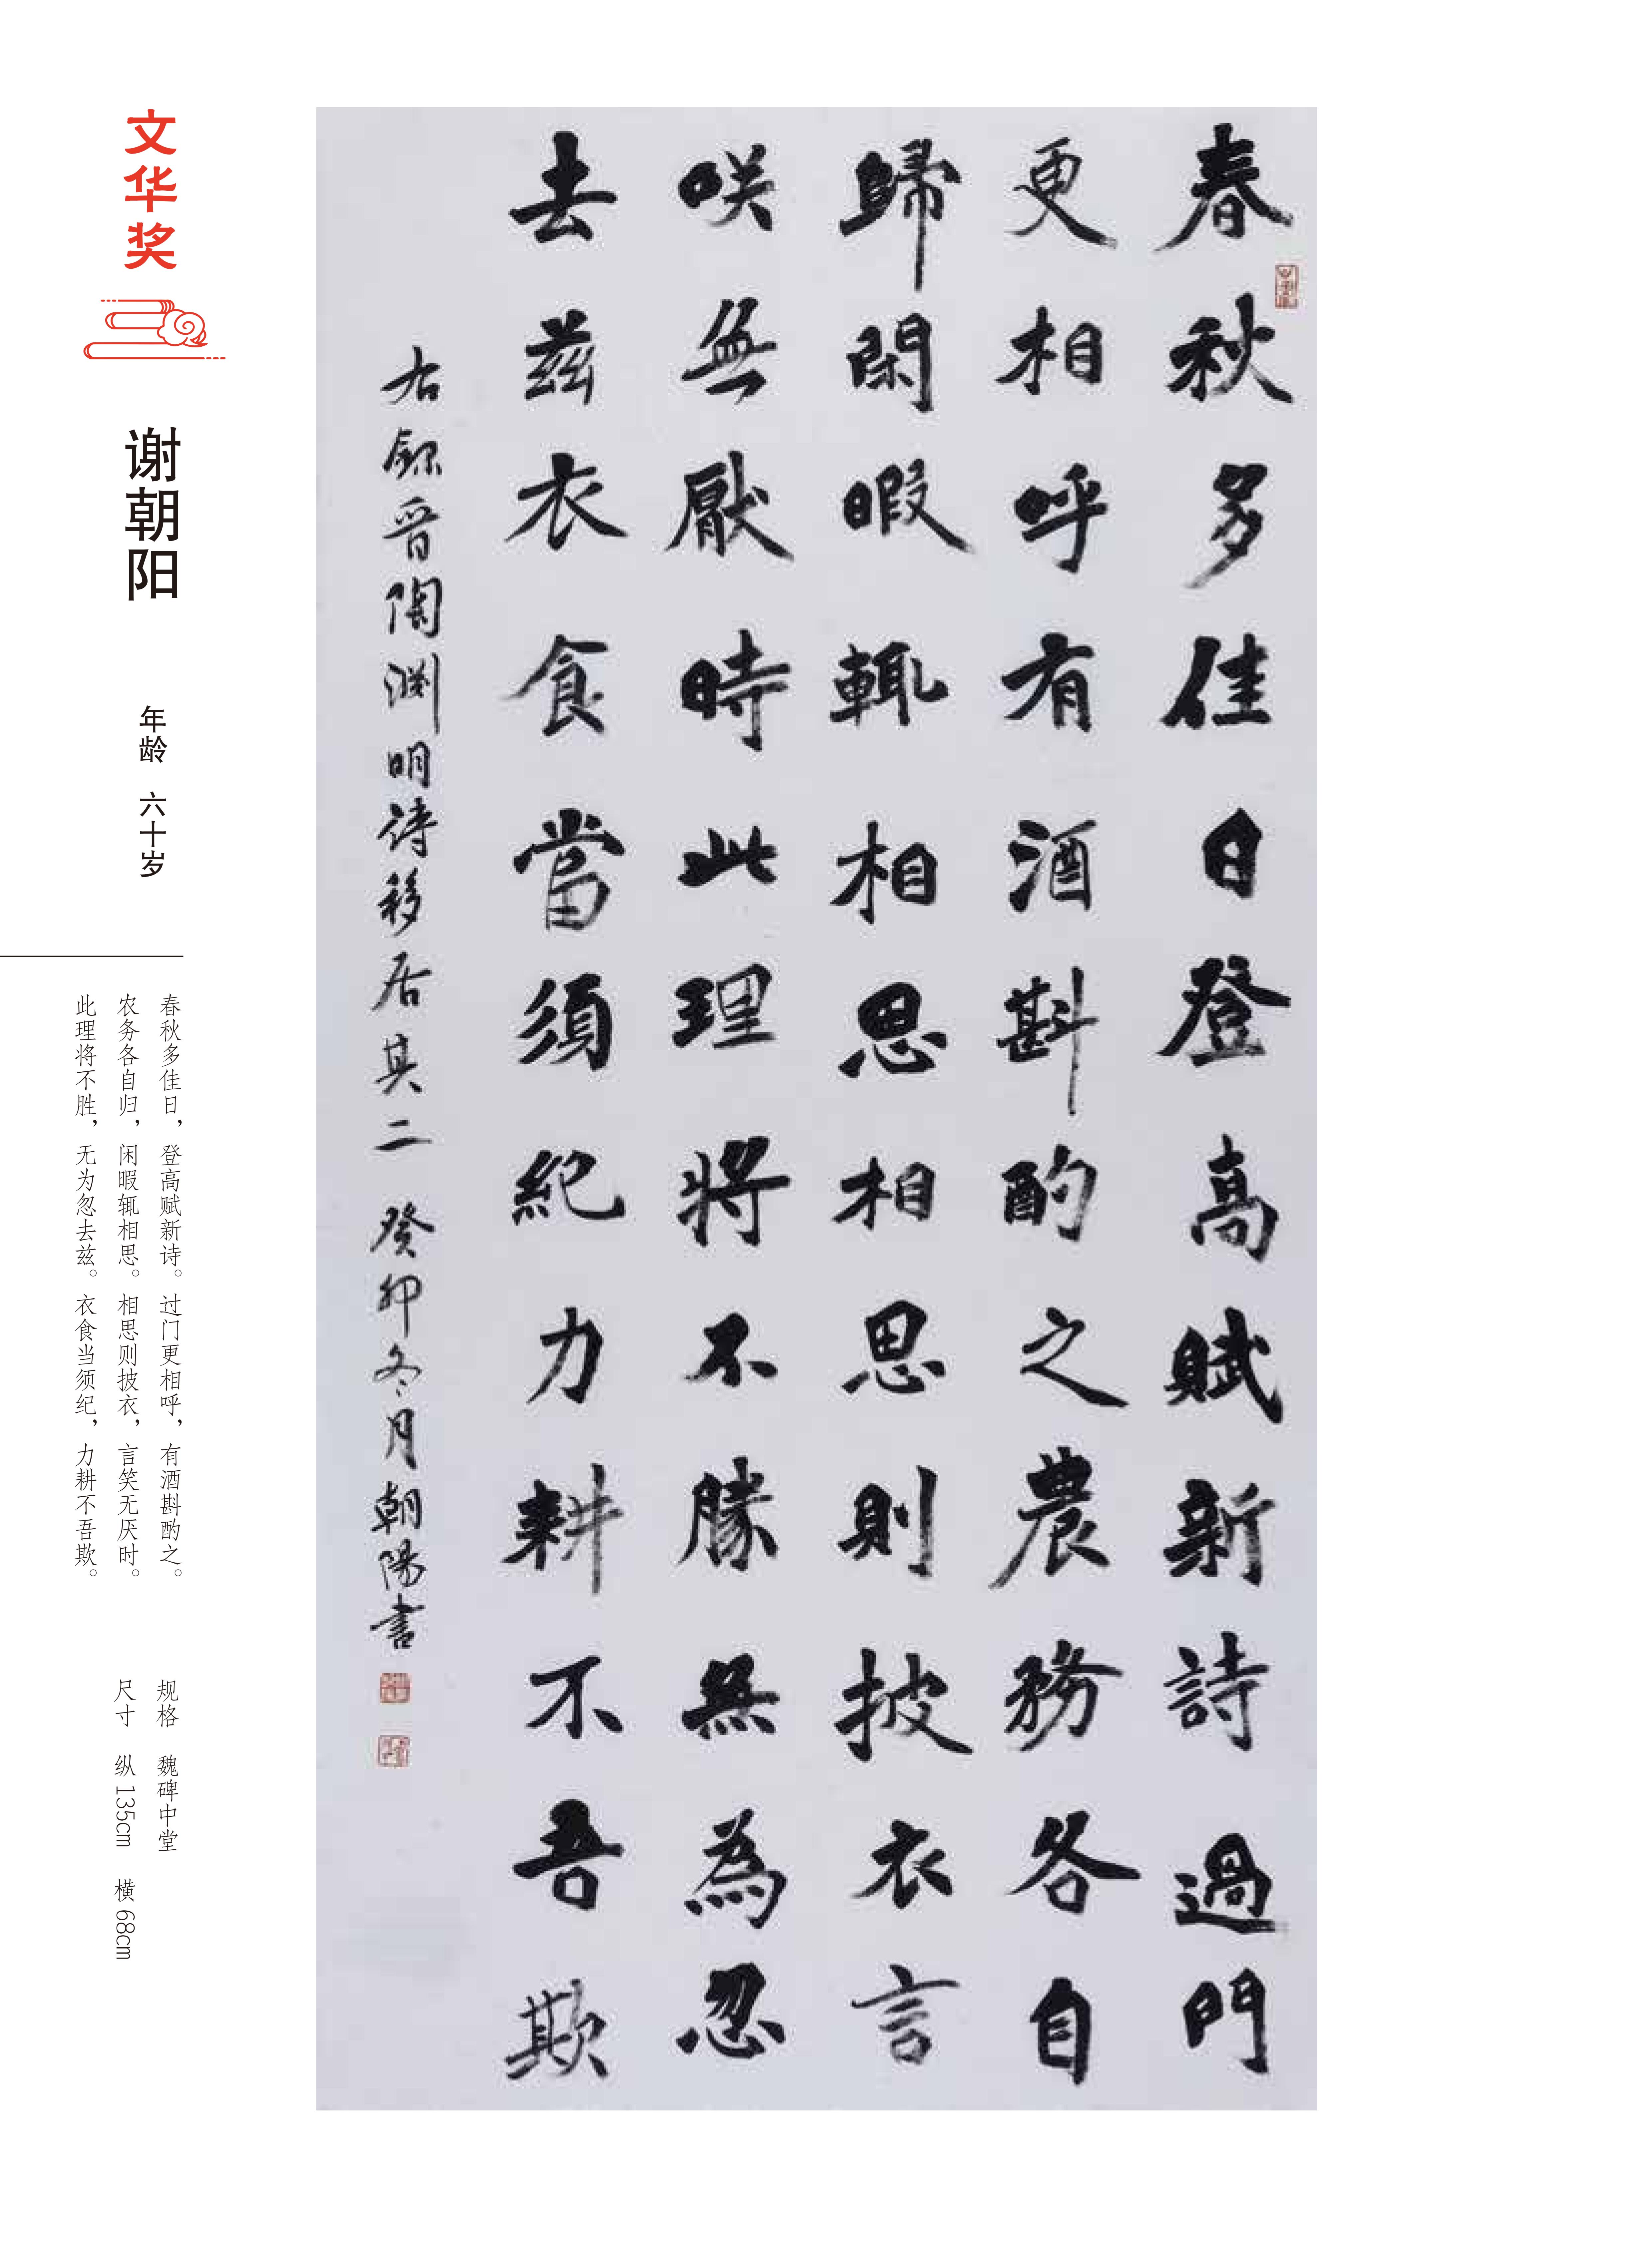 文华奖
谢朝阳
年龄 六十岁
春秋多佳日，登高赋新诗。过门更相呼，有酒斟酌之。
农务各自归，闲暇辄相思。相思则披衣，言笑无厌时。
此理将不胜，无为忽去兹。衣食当须纪，力耕不吾欺。
规格 魏碑中堂
尺寸 纵135cm 横68cm
春秋多佳日登高賦新詩過門
更相呼有酒斟酌之農務各自
歸閑暇輒相思相思則披衣言
咲無厭時此理將不勝無為忽
去茲衣食當須紀力耕不吾欺
右錄晉陶渊明詩移居其二 癸卯冬月朝陽書